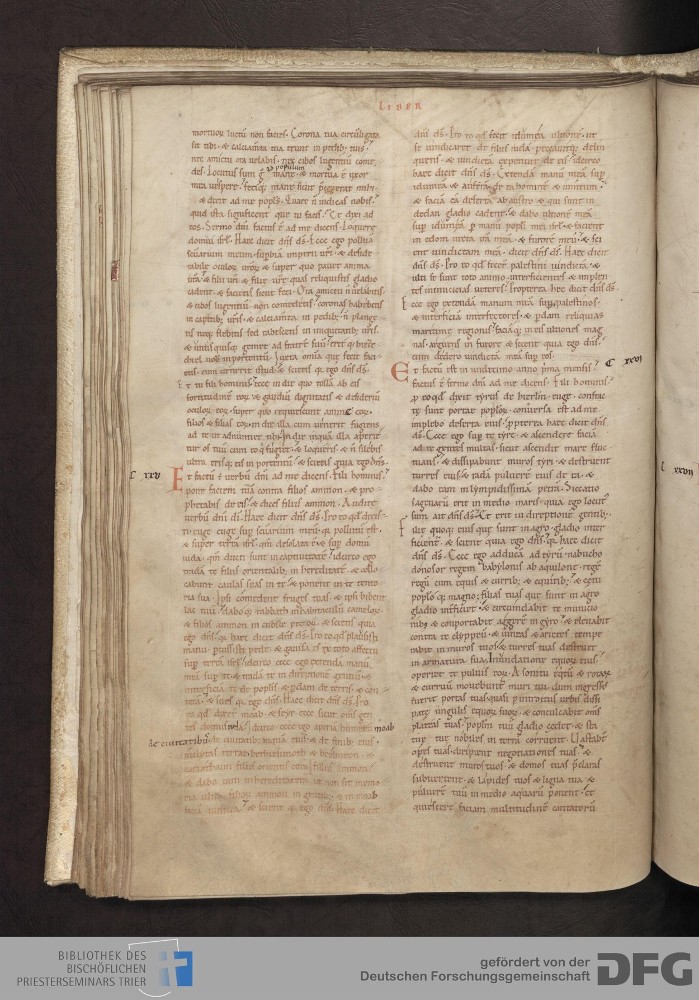 LIBER
mortuor luctū non facies. Corona tua circūligata
sit tibi. & calciam̄ta tua erunt in pedib; tuis.
nec amictu ora uelabis. nec cibos lugentiū come
des. Locutus sum g̊ ad populum mane. & mortua ē uxor
mea uespere. feciq; mane sicut p̄ceperat mihi.
& dixit ad me popls. Quare n̄ indicas nobis.
quid ista significent que tu facis. Et dixi ad
eos. Sermo dn̄i factus ē ad me dicens. Loquere
domui isrl. Haec dicit dn̄s ds̄. Ecce ego polluā
scuarium meum. supbia imperii urī. & deside
rabile oculoꝝ urōꝝ & super quo pauet anima
urā. & filii urī & filie urē quas reliquistis gladio
cadent. & facietis sicut feci. Ora amictu n̄ uelabitis.
& cibos lugentiū non comedetis. coronas habebitis
in capitib; urīs. & calciam̄ta in pedib; n̄ plange
tis neq; flebitis sed tabescetis in iniquitatib; urīs.
& unusquisq; gemet ad fratrē suū. erit q; hieze
chiel uob̄ in portentū. Iuxta omīa que fecit faci
etis. cum uenerit istud. & scietis q̄ ego dn̄s ds̄.
Et tu fili hominis. ecce in die quo tollā ab eis
fortitudinē eoꝝ & gaudiū dignitatis & desideriū
oculoꝝ eoꝝ. super quo requiescunt anime eoꝝ.
filios & filias eoꝝ. in die illa cum uenerit fugiens
ad te ut adnuntiet tibi. in die inquā illa aperie
tur os tuū cum eo q̇ fugit. & loqueris. & n̄ silebis
ultra. erisq; eis in portentū. & scietis quia ego dn̄s.
C XXV
Et factū ē uerbū dn̄i ad me dicens. Fili hominis.
pone faciem tuā contra filios ammon. & pro
phetabis de eis. & dices filiis ammon. Audite
uerbū dn̄i dī. Haec dicit dn̄s ds̄. Pro eo qd̄ dixis
ti. euge euge sup scuarium meū. q̄ pollutū est.
& super terrā isrl. qm̄ desolata ē. & sup domū
iuda. qm̄ ducti sunt in captiuitatē. idcirco ego
tradā te filiis orientalib; in hereditatē. & collo
cabunt caulas suas in te. & ponent in te tento
ria sua. Ipsi comedent fruges tuas. & ipsi bibent
lac tuū. dabo q; rabbath in habitaculū cameloꝝ.
& filios ammon in cubile pecoꝝ. & scietis quia
ego dn̄s. q̄ haec dicit dn̄s ds̄. Pro eo qd̄ plausisti
manu. & pcussisti pede. & gauisa es ex toto affectu
sup terrā isrl. idcirco ecce ego extendā manū
meā sup te. & tradā te in direptionē gentiū. &
interficiā te de poplis. & pdam de terris. & con
terā. & scies q̄ ego dn̄s. Haec dicit dn̄s ds̄. Pro
eo qd̄ dixer̄ moab. & seyr. ecce sicut om̄s gen
tes domus iuda. idcirco ecce ego aperiā humerū moab
de ciuitatib;
de ciuitatib; inquā eius. & de finib; eius.
inclytas terrae bethiesimoth & beelmeon. &
cariathaim filiis orientis cum filiis ammon.
& dabo eam in hereditatem ut non sit memo
ria ultra filioꝝ ammon in gentib;. & in moab
faciā iudicia. & scient q̄ ego dn̄s. Haec dicit
dn̄s ds̄. Pro eo qd̄ fecit idumea ultionē. ut
se uindicaret de filiis iuda. peccauitq; delin
quens. & uindictā expetiuit de eis. idcirco
haec dicit dn̄s ds̄. Extendā manū meā sup
idumeā. & auferā de ea hominē & iumentum.
& faciā eā desertā ab austro. & qui sunt in
dedan gladio cadent. & dabo ultionē meā
sup idumeā p manū popli mei isrl. & facient
in edom iuxta irā meā. & furorē meū. & sci
ent uindictam meā. dicit dn̄s ds̄. Haec dicit
dn̄s ds̄. Pro eo qd̄ fecer̄ palestini uindictā. &
ulti se sunt toto animo. interficientes & implen
tes inimicitias ueteres. Propterea haec dicit dn̄s ds̄.
Ecce ego extendā manum meā sup palestinos.
& interficiā interfectores. & pdam reliquias
maritime regionis. faciāq; in eis ultiones mag
nas. arguens in furore. & scient quia ego dn̄s.
cum dedero uindictā meā sup eos.
C XXVI
Et factū est in undecimo anno p̄ma mensis.
factus ē sermo dn̄i ad me dicens. Fili hominis.
p eo qd̄ dixit tyrus de hierlm̄. euge. confrac
te sunt porte poploꝝ. conuersa est ad me.
implebor deserta ē. ppterea haec dicit dn̄s
ds̄. Ecce ego sup te tyre. & ascendere faciā
ad te gentes multas. sicut ascendit mare fluc
tuans. & dissipabunt muros tyri. & destruent
turres eius. & radā puluerē eius de ea. &
dabo eam in lympidissimā petrā. Siccatio
sagenarū erit in medio maris. quia ego locut
sum ait dn̄s ds̄. Et erit in direptionē gentib;.
filię quoq; eius que sunt in agro. gladio inter
ficient. & scient quia ego dn̄s. q̄ haec dicit
dn̄s ds̄. Ecce ego adducā ad tyrū nabucho
donosor regem babylonis ab aquilone. regē
regū cum equis & currib; & equitib;. & cetu
poploq; magno. filias tuas que sunt in agro
gladio inficiet. & circumdabit te munitio
nib;. & comportabit aggerē in gyro. & eleuabit
contra te clyppeū. & uineas & arietes tempe
rabit in muros tuos. & turres tuas destruet
in armatura sua. Inundatione equoꝝ eius.
operiet te puluis eoꝝ. A sonitu equitū & rotaꝝ
& curruū mouebunt muri tui. dum ingressus
fuerit portas tuas. quasi p introitus urbis dissi
pate. ungulis equoꝝ suoꝝ. & conculcabit om̄s
plateas tuas. poplm̄ tuū gladio cedet. & sta
tue tue nobiles in terrā corruent. Uastabt̄
opes tuas. diripient negotiationes tuas. &
destruent muros tuos. & domos tuas p̄claras
subuertent. & lapides tuos & ligna tua &
puluerē tuū in medio aquarū ponent. Et
quiescere faciam multitudinē canticorū
C XXVII
BIBLIOTHEK DES
BISCHÖFLICHEN
PRIESTERSEMINARS TRIER
gefördert von der
Deutschen Forschungsgemeinschaft
DFG